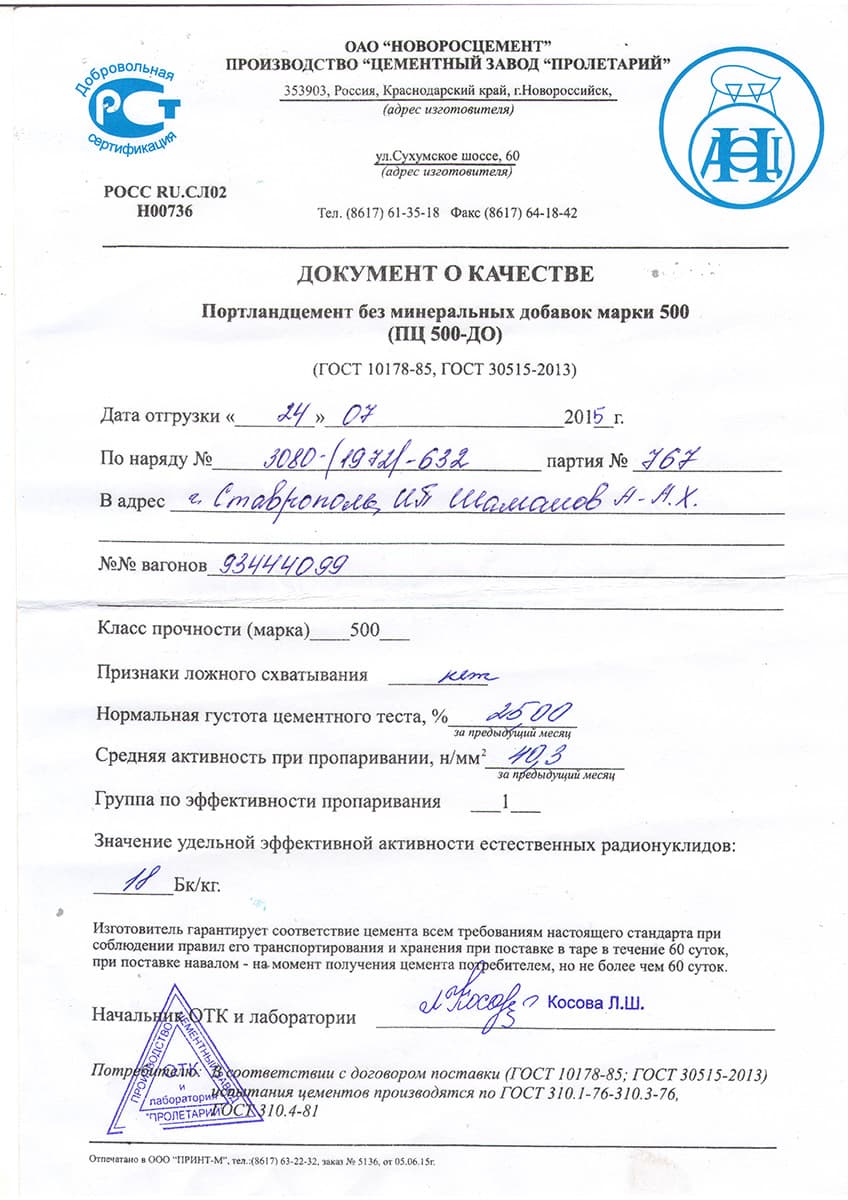 Добровольная
РСТ
сертификация
РОСС RU.СЛ02
Н00736
ОАО “НОВОРОСЦЕМЕНТ”
ПРОИЗВОДСТВО “ЦЕМЕНТНЫЙ ЗАВОД “ПРОЛЕТАРИЙ”
353903, Россия, Краснодарский край, г.Новороссийск,
(адрес изготовителя)
ул.Сухумское шоссе, 60
(адрес изготовителя)
Тел. (8617) 61-35-18 Факс (8617) 64-18-42
ДОКУМЕНТ О КАЧЕСТВЕ
Портландцемент без минеральных добавок марки 500
(ПЦ 500-ДО)
(ГОСТ 10178-85, ГОСТ 30515-2013)
Дата отгрузки «24» 07 2015 г.
По наряду № 3080-(1972)-632 партия № 767
В адрес г. Ставрополь, ИП Шаманов А-А.Х.
№№ вагонов 93444099
Класс прочности (марка) 500
Признаки ложного схватывания нет
Нормальная густота цементного теста, % 25,00
за предыдущий месяц
Средняя активность при пропаривании, н/мм² 40,3
за предыдущий месяц
Группа по эффективности пропаривания 1
Значение удельной эффективной активности естественных радионуклидов:
18 Бк/кг.
Изготовитель гарантирует соответствие цемента всем требованиям настоящего стандарта при
соблюдении правил его транспортирования и хранения при поставке в таре в течение 60 суток,
при поставке навалом - на момент получения цемента потребителем, но не более чем 60 суток.
Начальник ОТК и лаборатории Косова Л.Ш.
ПРОИЗВОДСТВО ЦЕМЕНТНЫЙ ЗАВОД
ОТК
и
лаборатория
"ПРОЛЕТАРИЙ"
Потребителю: В соответствии с договором поставки (ГОСТ 10178-85; ГОСТ 30515-2013)
испытания цементов производятся по ГОСТ 310.1-76-310.3-76,
ГОСТ 310.4-81
Отпечатано в ООО “ПРИНТ-М”, тел.:(8617) 63-22-32, заказ № 5136, от 05.06.15г.